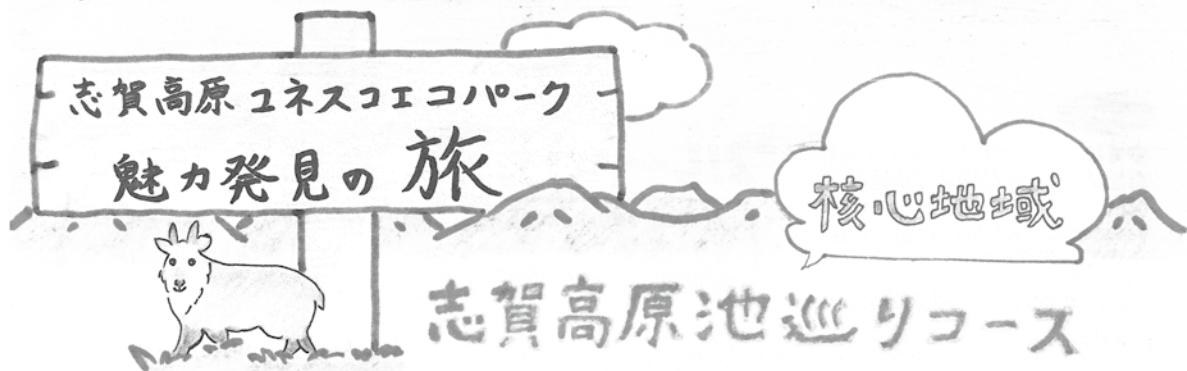 志賀高原ユネスコエコパーク
魅力発見の旅
核心地域
志賀高原池巡りコース